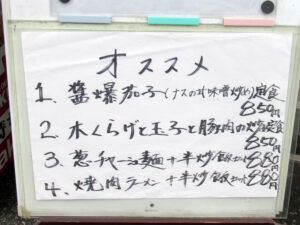 オススメ
1. 醤爆茄子(ナスの甘味噌炒め)定食
850円
2. 木くらげと玉子と豚肉の炒め定食
850円
3. 葱チャーシュー麺+半炒飯セット 880円
4. 焼肉ラーメン+半炒飯セット 880円